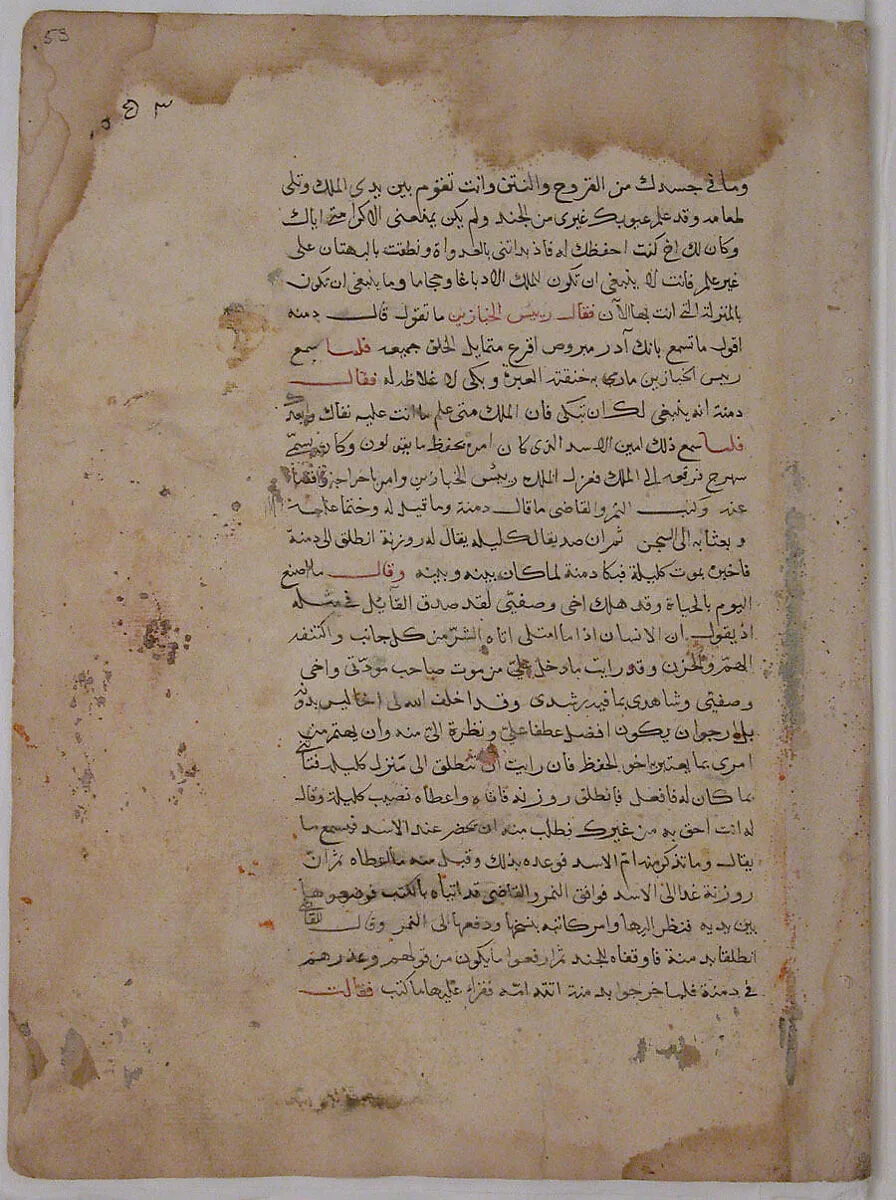 53
وما في جسدك من القروح والنتن وانت تقوم بين يدي الملك وتلي
لمعامه وقد علم عيوبك غيري من الجند ولم يكن يمنعني الاكرامتي اياك
وكان لك اخ كنت احفظك له فاذ بداتني بالعداوة ونطقت بالبهتان على
غير علم فانت لا ينبغي ان تكون الملك الا دباغا وحجاما وما ينبغي ان تكون
بالمنزلة التي انت بها الآن فقال رييس الخبازين ما تقول قال دمنه
اقول ما تسمع بانك آدر مبروص اقرع متمايل الخلق جميعه فلما سمع
رييس الخبازين خنقته العبرة وبكى لاغلاظه له فقال
دمنة انه ينبغي لك ان تبكي فان الملك متى علم ما انت عليه نفاك
فلما سمع ذلك امين الاسد الذي كان امره بحفظ ما يقولون وكان يسمى
سهرج فرفعه الى الملك فعزل الملك رييس الخبازين وامر باخراجه
عنه وكتب النمر والقاضي ما قال دمنة وما قيل له وختما عليه
وبعثا به الى السجن ثم ان صديقا لكليله يقال له روزنة انطلق الى دمنة
فاخبره بموت كليلة فبكا دمنة لما كان بينه وبينه وقال ما اصنع
اليوم بالحياة وقد هلك اخي وصفيي لقد صدق القايل في مثله
اذ يقول ان الانسان اذا ما امتلى اتاه الشر من كل جانب واكتنفه
الهم والحزن وقد رايت ما دخل علي من موت صاحب مودتي واخي
وصفيي وشاهدي بما فيه رشدي وقد اخلف الله لي اخا ليس بدونه
بل ارجو ان يكون افضل عطفا علي ونظرة الي منه وان يهتم من
امري بما يعتبر به اخو الحفظ فان رايت ان تنطلق الى منزل كليله فتاتيني
بما كان له فافعل فانطلق روزنه فاتاه واعطاه نصيب كليلة وقال
له انت احق به من غيرك فطلب منه ان يحضر عند الاسد فيسمع ما
يقال وما تذكر منه ام الاسد فوعده بذلك وقبل منه ما اعطاه ثم ان
روزنة غدا الى الاسد فوافق النمر والقاضي قد اتياه بالكتب فوضعوها
بين يديه فنظر اليها وامر كاتبه بنسخها ودفعها الى النمر وقال للقاضي
انطلقا بدمنة فاوقفاه للجند ثم ارفعوا ما يكون من قولهم وعذرهم
في دمنة فلما خرجوا بدمنة اتته امه فقراء عليها ما كتب فقالت